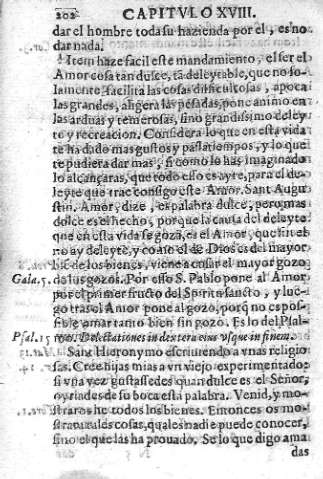 202 CAPITVLO XVIII.
dar el hombre toda su hazienda por el, es no
dar nada.
Item haze facil este mandamiento, el ser el
Amor cosa tan dulce, tã deleytable, que no so-
lamente facilita las cosas dificultosas, apoca
las grandes, aligera las pesadas, pone animo en
las arduas y temerosas, sino grandissimo deley
te y recreacion. Considera lo que en esta vida
te ha dado mas gustos y passatiempos, y lo que
te pudiera dar mas, si como lo has imaginado
lo alcançaras, que todo esso es ayre, para el de-
leyte que trae consigo este Amor. Sant Augu-
stin. Amor, dize, es palabra dulce, pero mas
dulce es el hecho, porque la causa del deleyte
que en esta vida se goza, es el Amor, que sin el
no ay deleyte, y como el de Dios es del mayor
bien de los bienes, viene a causar el mayor gozo
Gala. 5. de los gozos. Por esso S. Pablo pone al Amor
por el primer fructo del Spiritu sancto, y lue-
go tras el Amor pone al gozo, porq̃ no es pos-
sible amar tanto bien sin gozo. Es lo del Psal-
Psal. 15 mo. Delectationes in dextera tua vsque in finem.
Sant Hieronymo escriuiendo a vnas religio
sas. Cree hijas mias a vn viejo experimentado:
si vna vez gustassedes quan dulce es el Señor,
oyriades de su boca esta palabra. Venid, y mo-
straros he todos los bienes. Entonces os mo-
strara tales cosas, quales nadie puede conocer,
sino el que las ha prouado. Se lo que digo ama
das